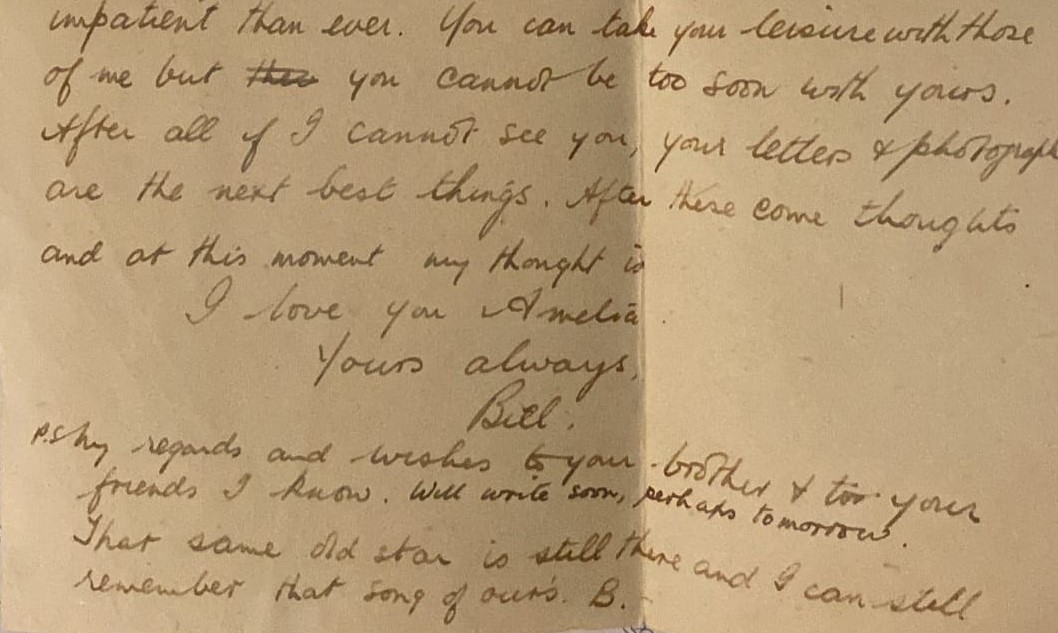 impatient than ever. You can take your leisure with those
of me but then you cannot be too soon with yours.
After all if I cannot see you, your letters & photograph
are the next best things. After these come thoughts
and at this moment my thought is
I love you Amelia.
Yours always,
Bill.
P.S My regards and wishes to your brother & to your
friends I know. Will write soon, perhaps tomorrow.
That same old star is still there and I can still
remember that song of our's. B.